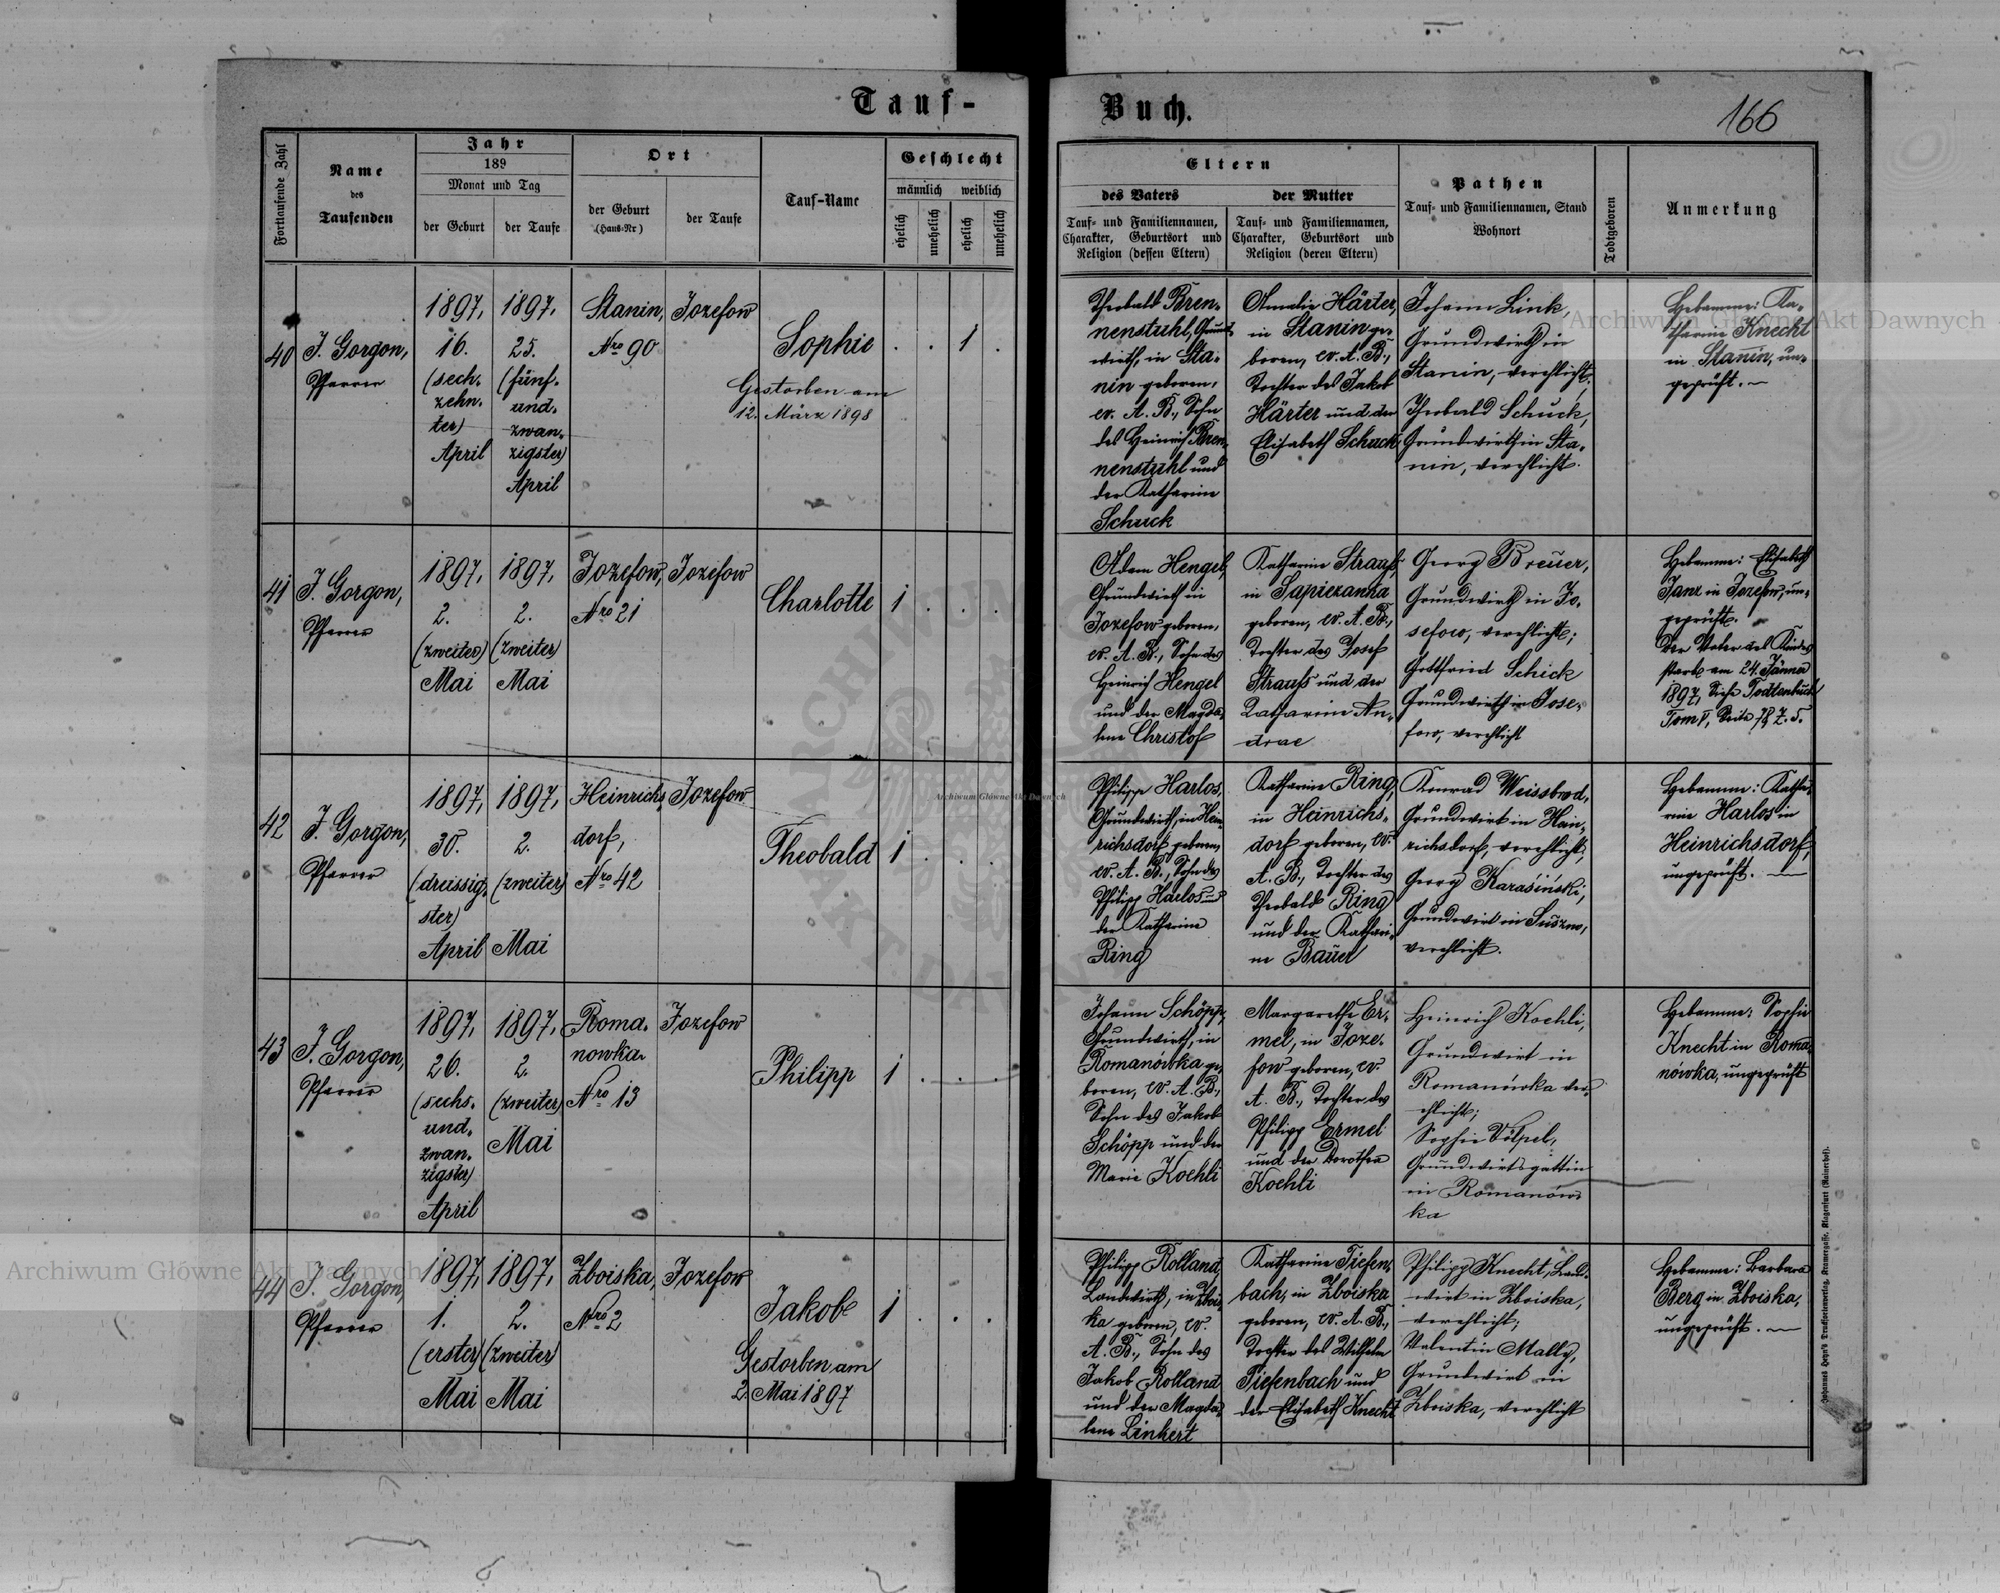 Tauf-
Buch.
166
Fortlaufende Zahl
Name
des
Taufenden
Jahr
189
Monat und Tag
der Geburt
der Taufe
Ort
der Geburt
(Haus-Nr)
der Taufe
Tauf-Name
Geschlecht
männlich weiblich
ehelich
unehelich
ehelich
unehelich
Eltern
des Vaters
Tauf- und Familiennamen,
Charakter, Geburtsort und
Religion (dessen Eltern)
der Mutter
Tauf- und Familiennamen,
Charakter, Geburtsort und
Religion (deren Eltern)
Pathen
Tauf- und Familiennamen, Stand
Wohnort
Todtgeboren
Anmerkung
40
J. Gorgon,
Pfarrer
1897,
16.
(sech-
zehn-
ter)
April
1897,
25.
(fünf-
und-
zwan-
zigster)
April
Stanin,
Nro 90
Jozefow
Sophie
Gestorben am
12. März 1898
. . 1 .
Theobald Bren-
nenstuhl, Grund-
wirth, in Sta-
nin geboren,
ev. A. B., Sohn
des Heinrich Bren-
nenstuhl und
der Katharine
Schuck
Amalie Härter,
in Stanin ge-
boren, ev. A. B.,
Tochter des Jakob
Härter und der
Elisabeth Schuck
Johann Link,
Grundwirth in
Stanin, verehlicht;
Theobald Schuck,
Grundwirth in Sta-
nin, verehlicht.
Hebamme: Ka-
tharine Knecht
in Stanin, un-
geprüft. —
41
J. Gorgon,
Pfarrer
1897,
2.
(zweiter)
Mai
1897,
2.
(zweiter)
Mai
Jozefow,
Nro 21
Jozefow
Charlotte
1 . . .
Adam Hengel,
Grundwirth in
Jozefow geboren,
ev. A. B., Sohn des
Heinrich Hengel
und der Magda-
lene Christof
Katharine Strauß,
in Sapiezanka
geboren, ev. A. B.,
Tochter des Josef
Strauß und der
Katharine An-
drae
Georg Breuer,
Grundwirth in Jo-
sefow, verehlicht;
Gottfried Schick
Grundwirth in Jose-
fow, verehlicht
Hebamme: Elisabeth
Janz in Jozefow, un-
geprüft.
Der Vater des Kindes
starb am 24. Jänner
1897, Siehe Todtenbuch
Tom V, Seite 78, Z. 5.
42
J. Gorgon,
Pfarrer
1897,
30.
(dreissig-
ster)
April
1897,
2.
(zweiter)
Mai
Heinrichs
dorf,
Nro 42
Jozefow
Theobald
1 . . .
Philipp Harlos,
Grundwirth, in Hein-
richsdorf geboren,
ev. A. B., Sohn des
Philipp Harlos und
der Katharine
Ring
Katharine Ring,
in Heinrichs-
dorf geboren, ev.
A. B., Tochter des
Theobald Ring
und der Kathari-
ne Bauer
Konrad Weissbrod,
Grundwirt in Hein-
richsdorf, verehlicht;
Georg Karasiński,
Grundwirt in Suszno,
verehlicht.
Hebamme: Katha-
rine Harlos in
Heinrichsdorf,
ungeprüft. —
43
J. Gorgon,
Pfarrer
1897,
26.
(sechs-
und-
zwan-
zigster)
April
1897,
2.
(zweiter)
Mai
Roma-
nowka
Nro 13
Jozefow
Philipp
1 . . .
Johann Schöpp,
Grundwirth, in
Romanówka ge-
boren, ev. A. B.,
Sohn des Jakob
Schöpp und der
Marie Koehli
Margarethe Er-
mel, in Joze-
fow geboren, ev.
A. B., Tochter des
Philipp Ermel
und der Dorothea
Koehli
Heinrich Koehli,
Grundwirt in
Romanówka ver-
ehlicht;
Sophie Völpel,
Grundwirtsgattin
in Romanów-
ka
Hebamme: Sophie
Knecht in Roma-
nówka, ungeprüft
44
J. Gorgon,
Pfarrer
1897,
1.
(erster)
Mai
1897,
2.
(zweiter)
Mai
Zboiska,
Nro 2
Jozefow
Jakob
Gestorben am
2. Mai 1897
1 . . .
Philipp Rolland,
Landwirth, in Zbois-
ka geboren, ev.
A. B., Sohn des
Jakob Rolland
und der Magda-
lene Linkert
Katharine Tiefen-
bach, in Zboiska
geboren, ev. A. B.,
Tochter des Wilhelm
Tiefenbach und
der Elisabeth Knecht
Philipp Knecht, Land-
wirt in Zboiska,
verehlicht;
Valentin Mally,
Grundwirt in
Zboiska, verehlicht
Hebamme: Barbara
Berg in Zboiska,
ungeprüft. —
Johannes Heyn's Druckereiverlag, Kramergasse, Klagenfurt (Rainerhof).
Archiwum Główne Akt Dawnych
Archiwum Główne Akt Dawnych
Archiwum Główne Akt Dawnych